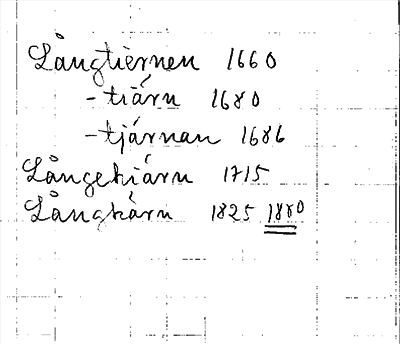 Långtiernen 1660
-tiärn 1680
-tjärnan 1686
Långekiärn 1715
Långkärn 1825 1880